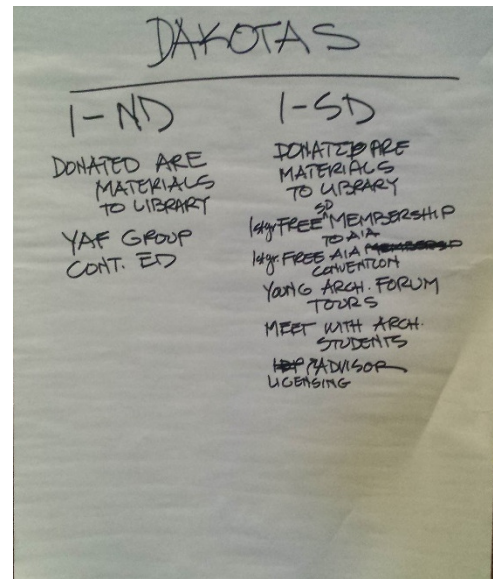 DAKOTAS
1-ND
DONATED ARE
MATERIALS
TO LIBRARY
YAF GROUP
CONT. ED
1-SD
DONATED ARE
MATERIALS
TO LIBRARY
SD
1st yr. FREE ^ MEMBERSHIP
TO AIA
1st yr. FREE AIA
CONVENTION
YOUNG ARCH. FORUM
TOURS
MEET WITH ARCH.
STUDENTS
ADVISOR
LICENSING